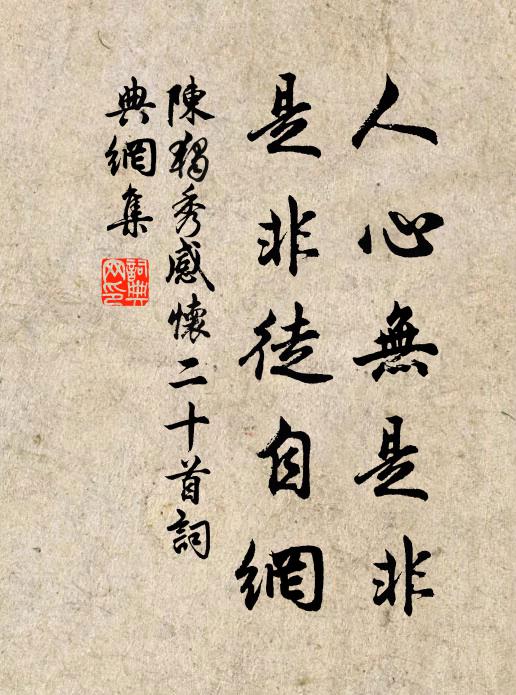 人心無是非
是非徒自網
陳獨秀感懷二十首詞
典網集
詞典
网印